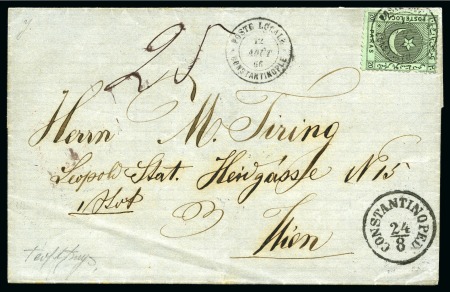 25
POSTE LOCALE
12
AOUT
66
CONSTANTINOPLE
POSTE LOCALE
Herrn M. Tiring
Leopold Stat. Heidgasse N 15
1 Hof
Wien
CONSTANTINOPEL
24/8